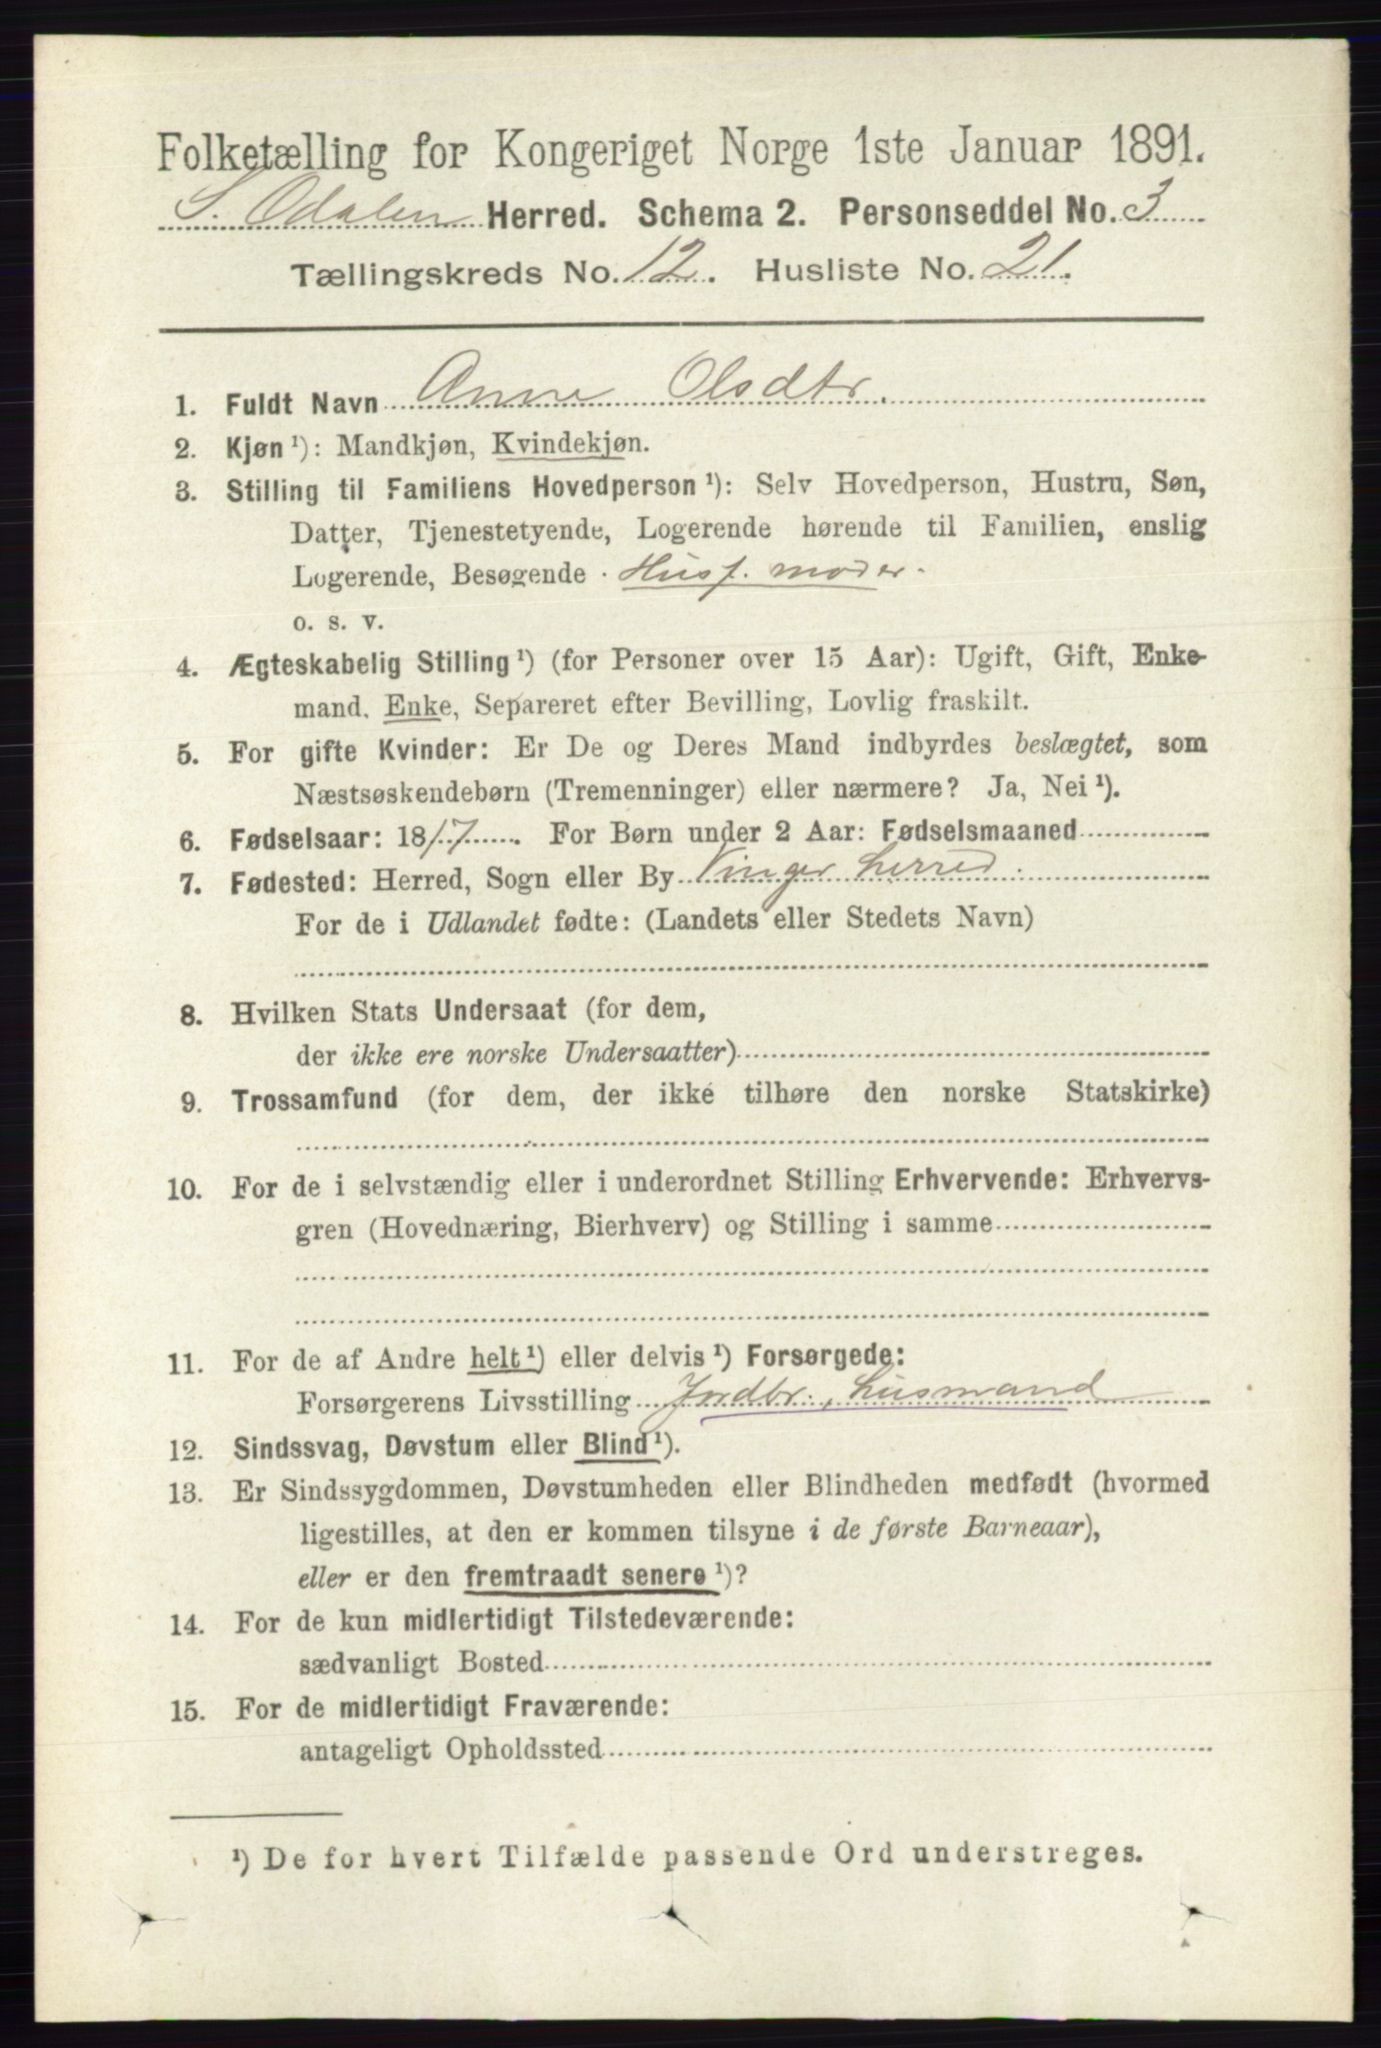 Folketælling for Kongeriget Norge 1ste Januar 1891.
S. Odalen Herred. Schema 2. Personseddel No. 3
Tællingskreds No. 12. Husliste No. 21.
1. Fuldt Navn Anne Olsdtr.
2. Kjøn ¹): Mandkjøn, Kvindekjøn.
3. Stilling til Familiens Hovedperson ¹): Selv Hovedperson, Hustru, Søn,
Datter, Tjenestetyende, Logerende hørende til Familien, enslig
Logerende, Besøgende Husf. moder.
o. s. v.
4. Ægteskabelig Stilling ¹) (for Personer over 15 Aar): Ugift, Gift, Enke-
mand, Enke, Separeret efter Bevilling, Lovlig fraskilt.
5. For gifte Kvinder: Er De og Deres Mand indbyrdes beslægtet, som
Næstsøskendebørn (Tremenninger) eller nærmere? Ja, Nei ¹).
6. Fødselsaar: 1817. For Børn under 2 Aar: Fødselsmaaned
7. Fødested: Herred, Sogn eller By Vinger herred.
For de i Udlandet fødte: (Landets eller Stedets Navn)
8. Hvilken Stats Undersaat (for dem,
der ikke ere norske Undersaatter)
9. Trossamfund (for dem, der ikke tilhøre den norske Statskirke)
10. For de i selvstændig eller i underordnet Stilling Erhvervende: Erhvervs-
gren (Hovednæring, Bierhverv) og Stilling i samme
11. For de af Andre helt ¹) eller delvis ¹) Forsørgede:
Forsørgerens Livsstilling Jordbr., husmand
12. Sindssvag, Døvstum eller Blind ¹).
13. Er Sindssygdommen, Døvstumheden eller Blindheden medfødt (hvormed
ligestilles, at den er kommen tilsyne i de første Barneaar),
eller er den fremtraadt senere ¹)?
14. For de kun midlertidigt Tilstedeværende:
sædvanligt Bosted
15. For de midlertidigt Fraværende:
antageligt Opholdssted
¹) De for hvert Tilfælde passende Ord understreges.